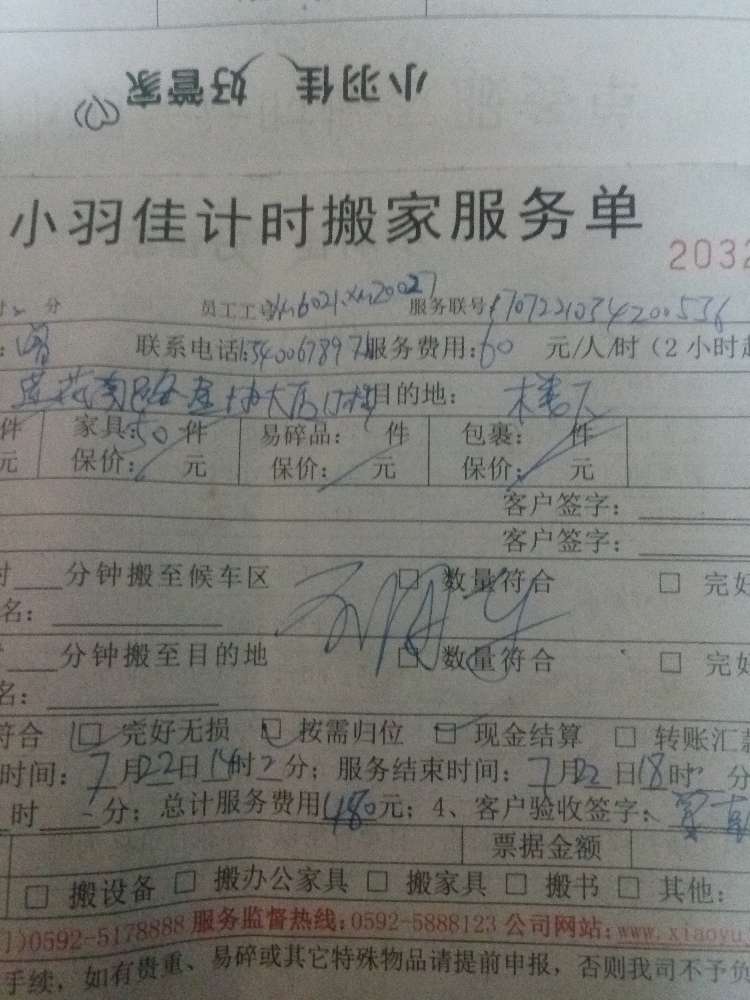 小羽佳 好管家
小羽佳计时搬家服务单
2032
分 员工工号 服务联号:1707221034200536
联系电话: 服务费用:60 元/人/时(2小时起
目的地: 楼下
件 家具:50 件 易碎品: 件 包裹: 件
元 保价: 元 保价: 元 保价: 元
客户签字:
客户签字:
时 分钟搬至候车区 □ 数量符合 □ 完好
名:
分钟搬至目的地 □ 数量符合 □ 完好
名:
符合 □ 完好无损 □ 按需归位 □ 现金结算 □ 转账汇款
时间:7月22日14时 分;服务结束时间:7月22日18时 分
时 分;总计服务费用480元;4、客户验收签字:
票据金额
□ 搬设备 □ 搬办公家具 □ 搬家具 □ 搬书 □ 其他:
1)0592-5178888 服务监督热线:0592-5888123 公司网站:www.xiaoyu
手续,如有贵重、易碎或其它特殊物品请提前申报,否则我司不予负